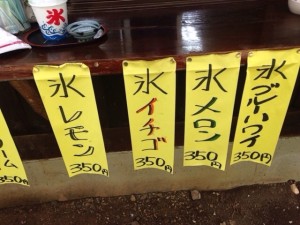 氷
氷
レモン
350円
氷
イチゴ
350円
氷
メロン
350円
氷
ブルーハワイ
350円
ーム
350円